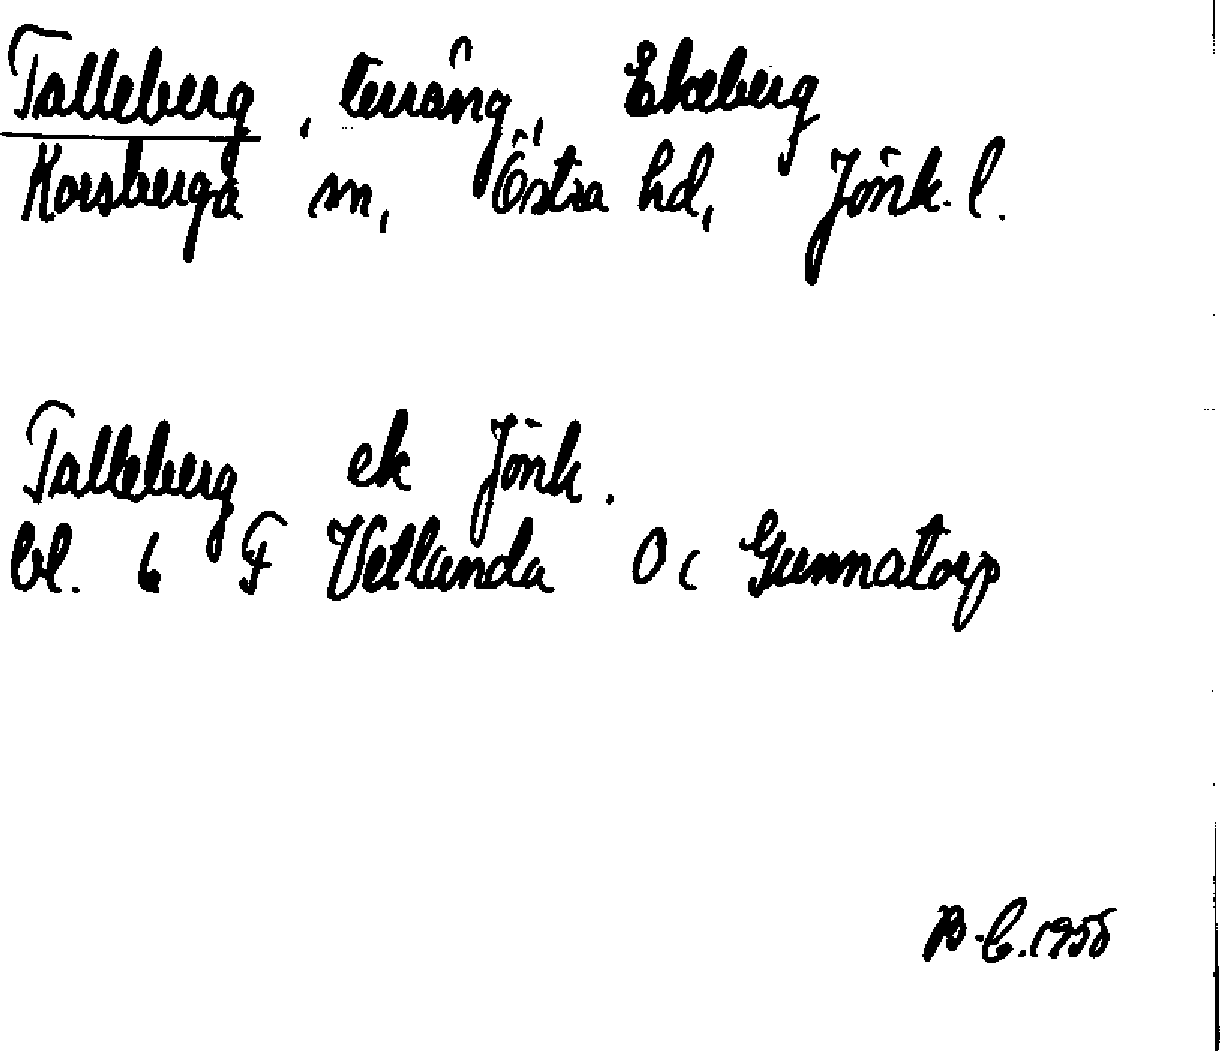 Talleberg, terräng, Ekeberg
Korsberga sn, Östra hd, Jönk. l.
Talleberg ek Jönk.
bl. 6 F Vetlanda 0 c Gunnatorp
1955